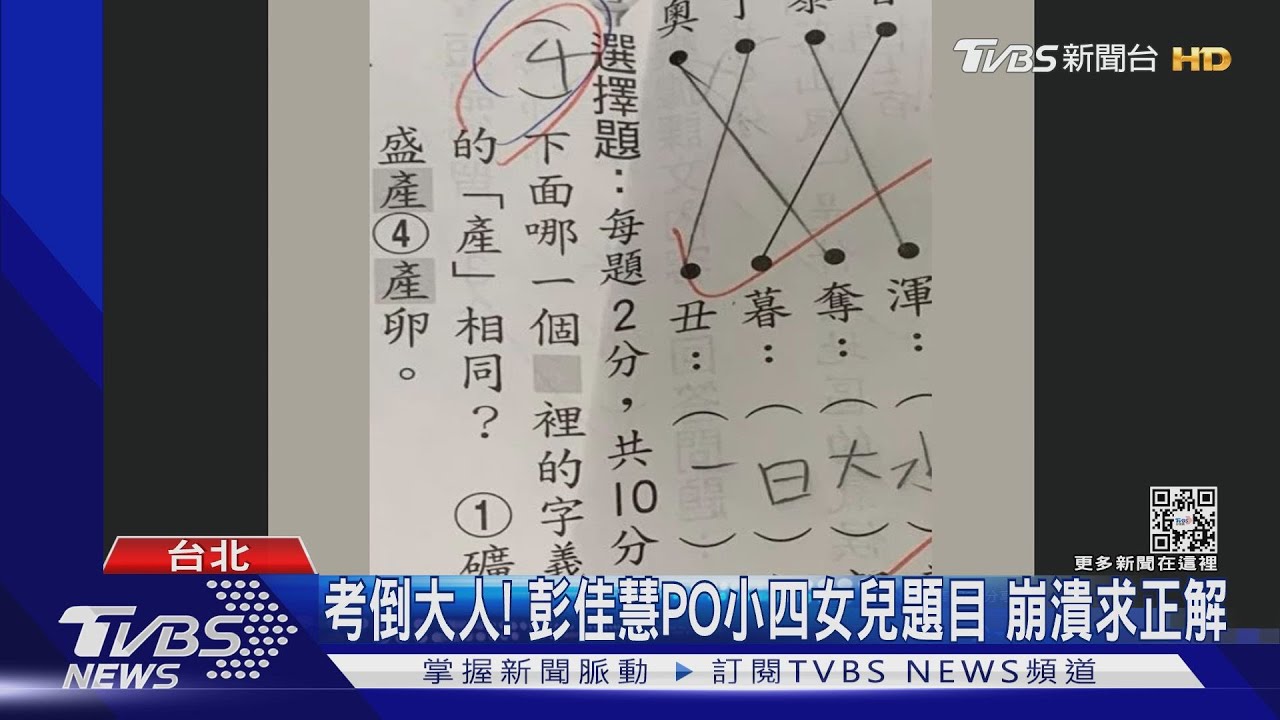 TVBS新聞台 HD
奧
渾：（水）
奪：（大）
暮：（日）
丑：（一）
選擇題：每題2分，共10分
（4）下面哪一個 裡的字義
的「產」相同？ ①礦
盛產④產卵。
更多新聞在這裡
台北
考倒大人! 彭佳慧PO小四女兒題目 崩潰求正解
TVBS NEWS
掌握新聞脈動 ▶ 訂閱TVBS NEWS頻道